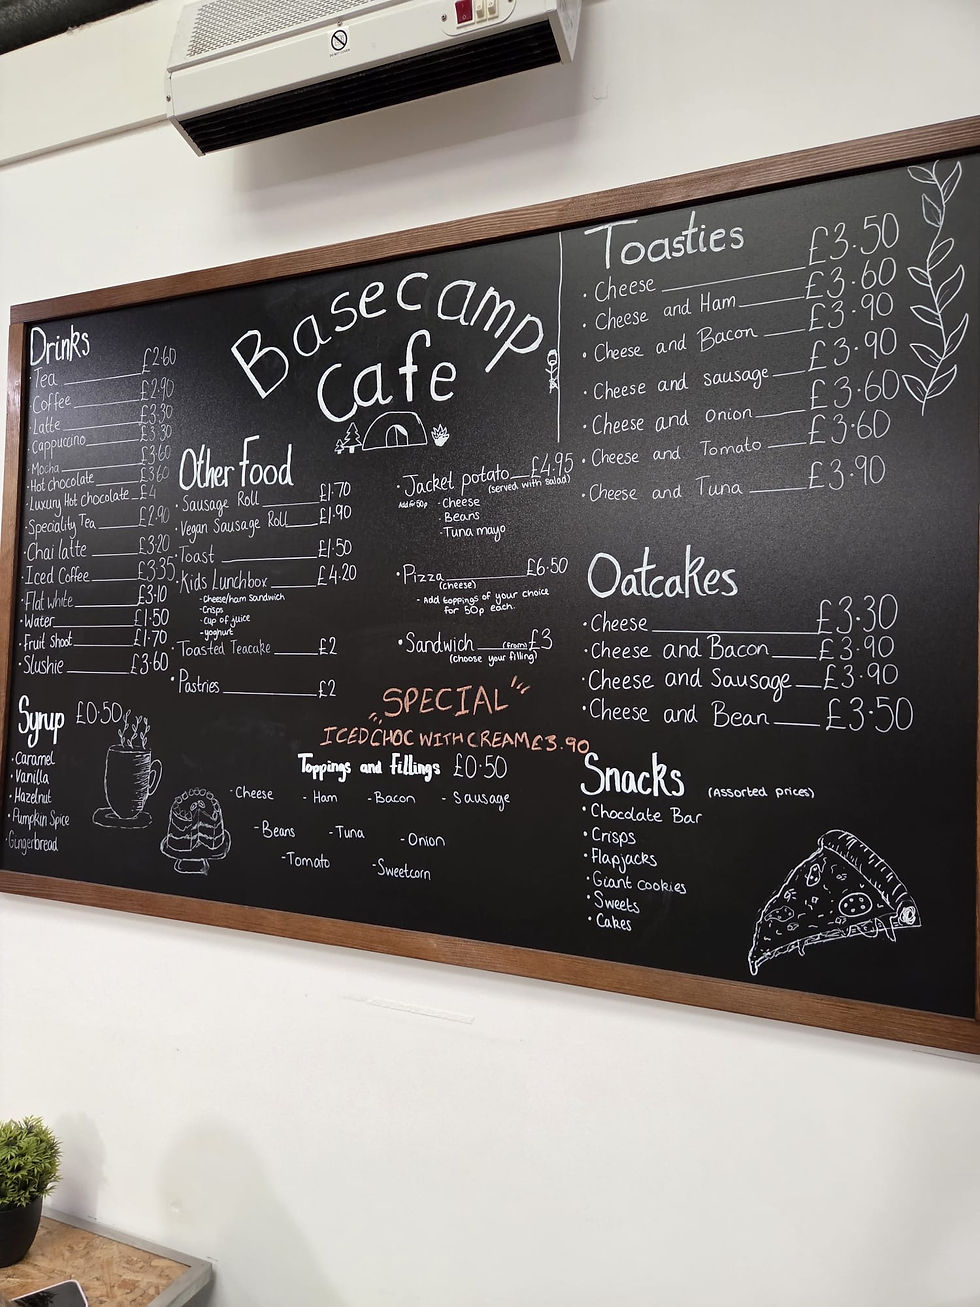 Basecamp
Cafe
Drinks
·Tea £2.60
·Coffee £2.90
·Latte £3.30
·Cappuccino £3.30
·Mocha £3.60
·Hot chocolate £3.60
·Luxury Hot chocolate £4
·Speciality Tea £2.90
·Chai latte £3.20
·Iced Coffee £3.35
·Flat white £3.10
·Water £1.50
·Fruit shoot £1.70
·Slushie £3.60
Syrup £0.50
·Caramel
·Vanilla
·Hazelnut
·Pumpkin Spice
·Gingerbread
Other Food
·Sausage Roll £1.70
·Vegan Sausage Roll £1.90
·Toast £1.50
·Kids Lunchbox £4.20
-Cheese/ham sandwich
-Crisps
-Cup of juice
-yoghurt
·Toasted Teacake £2
·Pastries £2
·Jacket potato £4.95
(served with salad)
Add for 50p
-Cheese
-Beans
-Tuna mayo
·Pizza £6.50
(cheese)
- Add toppings of your choice
for 50p each.
·Sandwich (from) £3
(choose your filling)
SPECIAL
ICED CHOC WITH CREAM £3.90
Toppings and Fillings £0.50
-Cheese -Ham -Bacon -Sausage
-Beans -Tuna -Onion
-Tomato -Sweetcorn
Toasties
·Cheese £3.50
·Cheese and Ham £3.60
·Cheese and Bacon £3.90
·Cheese and sausage £3.90
·Cheese and onion £3.60
·Cheese and Tomato £3.60
·Cheese and Tuna £3.90
Oatcakes
·Cheese £3.30
·Cheese and Bacon £3.90
·Cheese and Sausage £3.90
·Cheese and Bean £3.50
Snacks (Assorted prices)
·Chocolate Bar
·Crisps
·Flapjacks
·Giant cookies
·Sweets
·Cakes